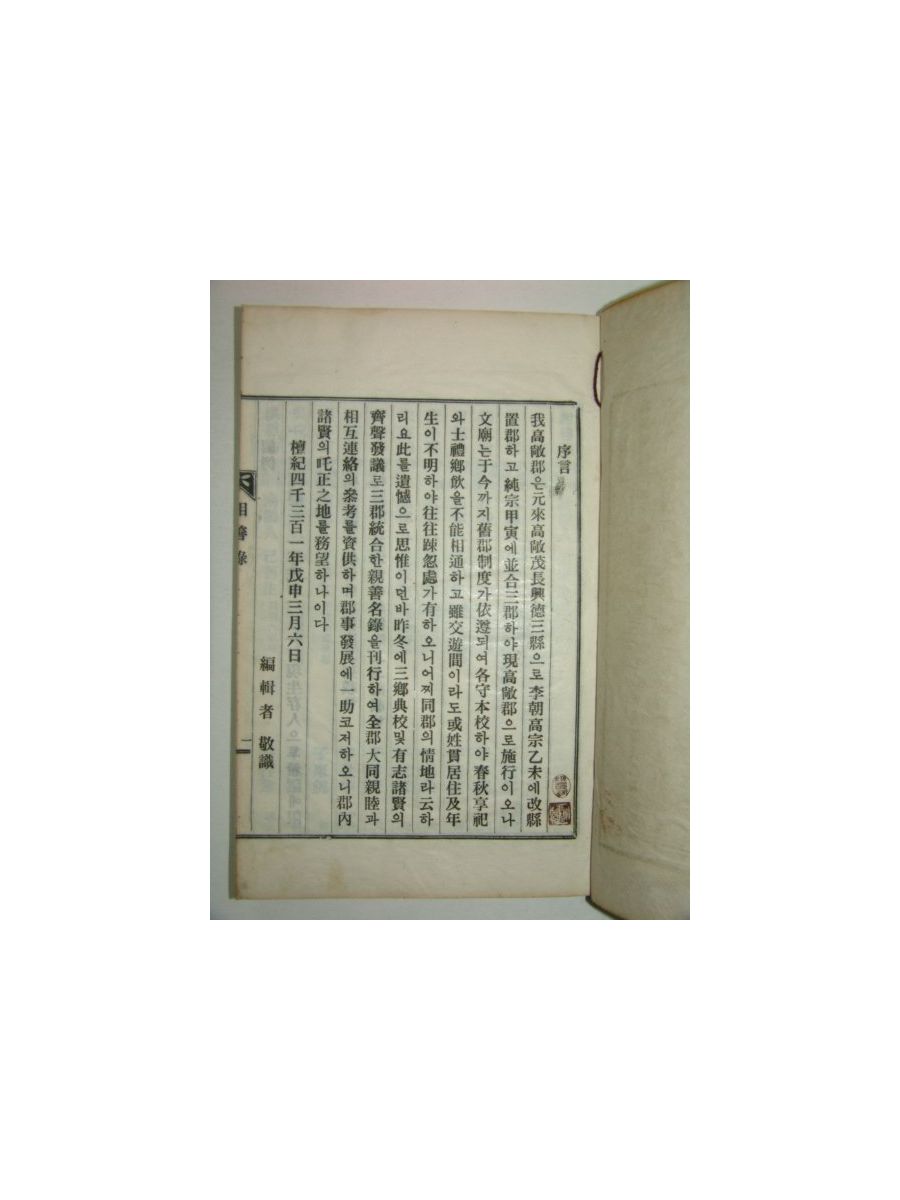 序言
我高敞郡은元來高敞茂長興德三縣으로李朝高宗乙未에改縣
置郡하고純宗甲寅에並合三郡하야現高敞郡으로施行이오나
文廟는于今까지舊郡制度가依遵되여各守本校하야春秋享祀
와士禮鄉飮을不能相通하고雖交遊間이라도或姓貫居住及年
生이不明하야往往踈忽處가有하오니어찌同郡의情地라云하
리요此를遺憾으로思惟이던바昨冬에三鄉典校및有志諸賢의
齊聲發議로三郡統合한親善名錄을刊行하여全郡大同親睦과
相互連絡의叅考를資供하며郡事發展에一助코저하오니郡內
諸賢의叱正之地를務望하나이다
檀紀四千三百一年戊申三月六日
編輯者 敬識
相善錄
一